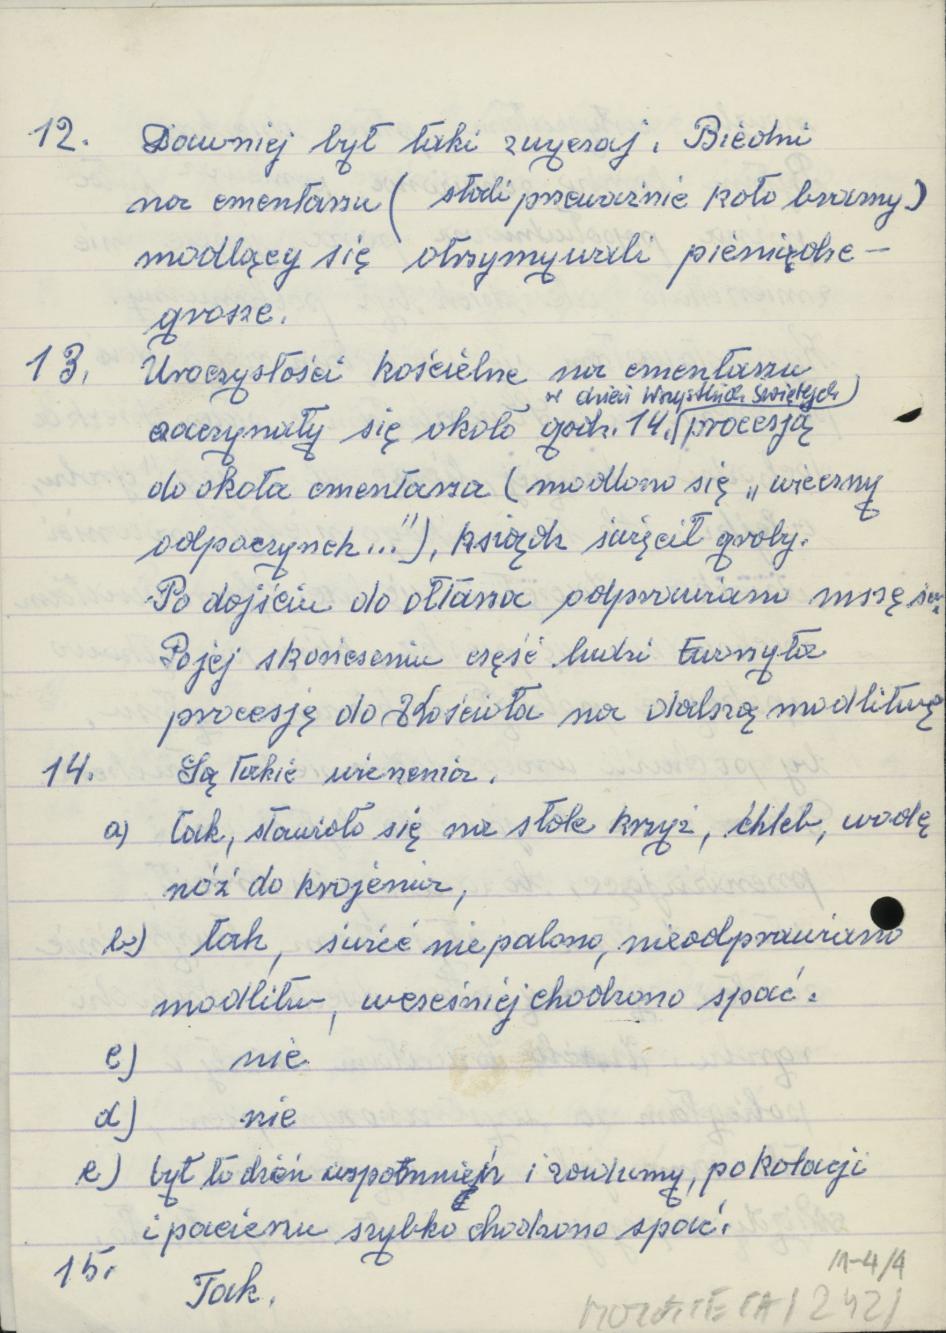 12. Dawniej był taki zwyczaj. Biedni
na cmentarzu ( stali przeważnie koło bramy)
modlący się otrzymywali pieniądze –
grosze.
13. Uroczystości kościelne na cmentarzu
w dzień Wszystkich Świętych
zaczynały się około godz. 14. procesją
do okoła cmentarza (modlono się „wieczny
odpoczynek..."), ksiądz święcił groby.
Po dojściu do ołtarza odprawiano mszę św.
Po jej skończeniu część ludzi tworzyła
procesję do Kościoła na dalszą modlitwę
14. Są takie wierzenia.
a) tak, stawiało się na stole krzyż, chleb, wodę
nóż do krojenia,
b) tak, świec nie palono, nie odprawiano
modlitw, wcześniej chodzono spać.
c) nie
d) nie
e) był to dzień wspomnień i zadumy, po kolacji
i pacierzu szybko chodzono spać.
15. Tak.
/1-4/4
/242/